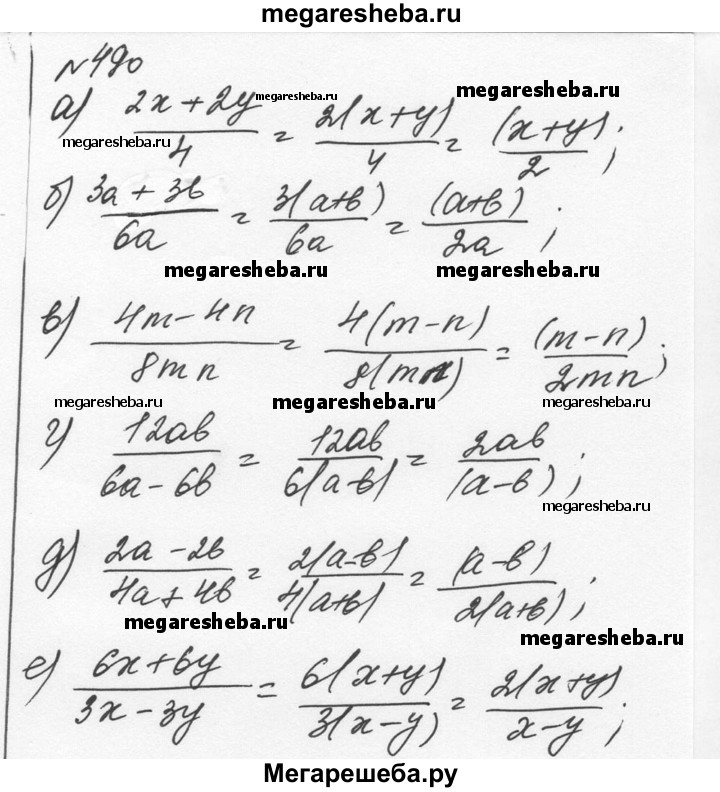 megaresheba.ru
№490
а) (2x + 2y)/4 = 2(x+y)/4 = (x+y)/2;
megaresheba.ru megaresheba.ru megaresheba.ru
б) (3a + 3b)/6a = 3(a+b)/6a = (a+b)/2a;
megaresheba.ru megaresheba.ru
в) (4m - 4n)/8mn = 4(m-n)/8(mn) = (m-n)/2mn;
megaresheba.ru megaresheba.ru megaresheba.ru
г) 12ab/(6a-6b) = 12ab/6(a-b) = 2ab/(a-b);
megaresheba.ru
д) (2a-2b)/(4a+4b) = 2(a-b)/4(a+b) = (a-b)/2(a+b);
megaresheba.ru megaresheba.ru
е) (6x+6y)/(3x-3y) = 6(x+y)/3(x-y) = 2(x+y)/(x-y);
Мегарешеба.ру